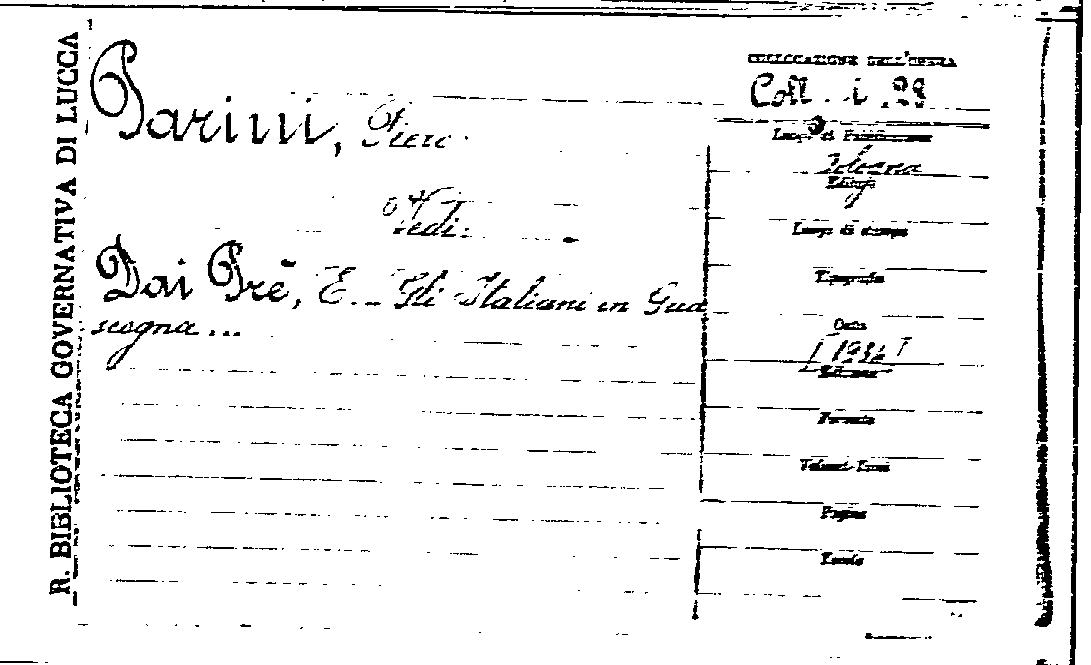 R. BIBLIOTECA GOVERNATIVA DI LUCCA
Parini, Piero.
Vedi:
Dai Prè, E. - Gli Italiani in Gua
scogna ...
COLLOCAZIONE DELL'OPERA
Coll. i. 28
Luogo di Pubblicazione
Bologna
Editore
Luogo di stampa
Tipografia
Data
[1934]
Edizione
Formato
Volumi-Tomi
Pagine
Tavole